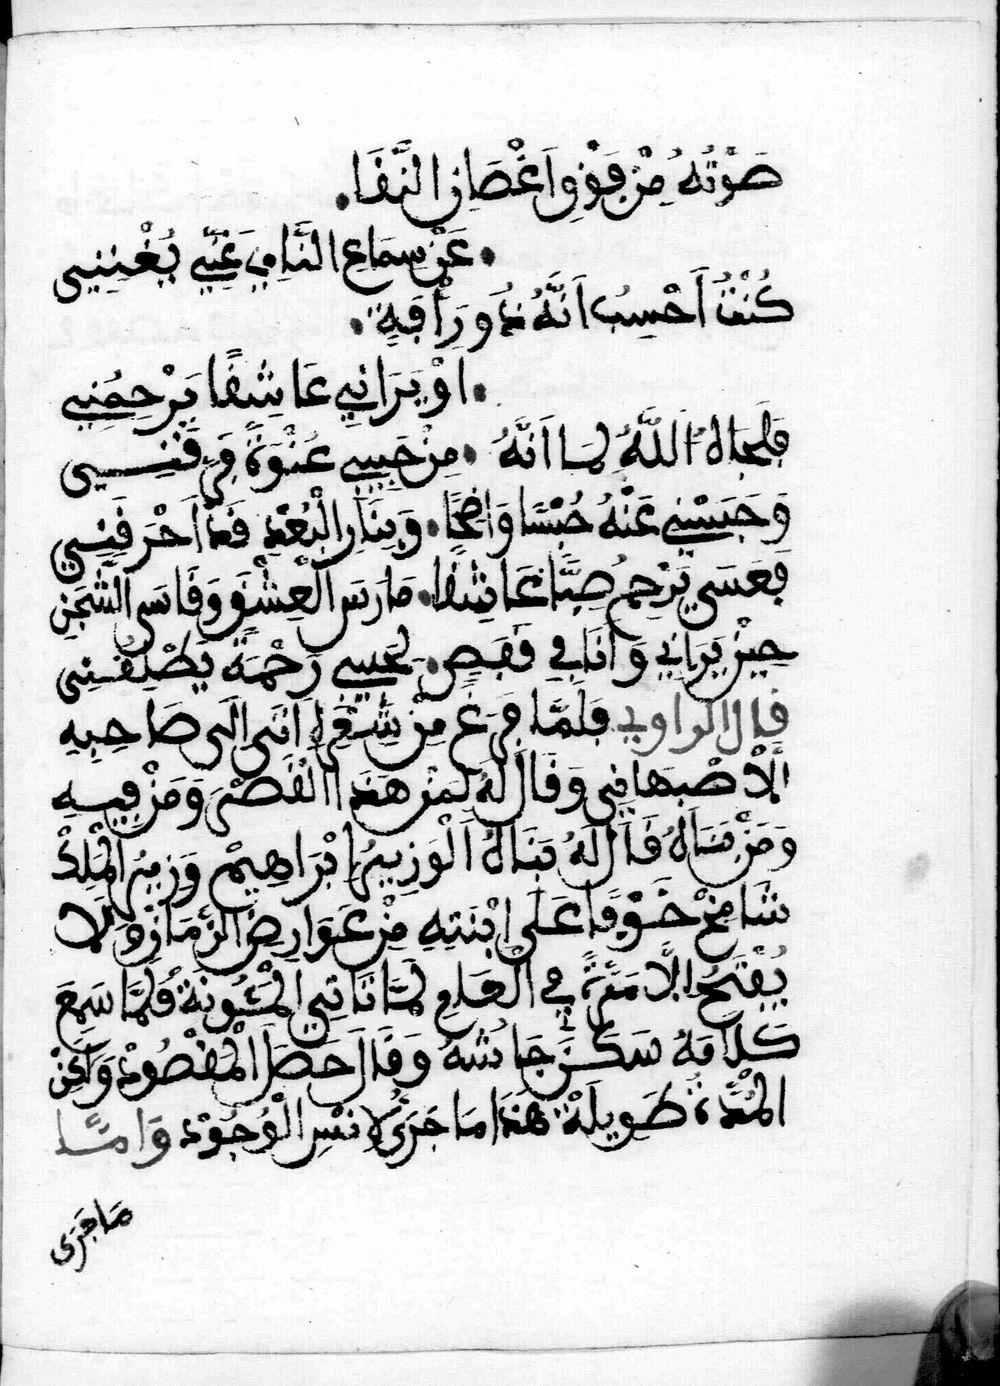 صَوْتُهُ مِنْ فَوْقِ اَغْصَانِ النَّقَا.
. عَنْ سِمَاعِ النَّايِ عَنِّي يُغْنِينِي
كُنْتُ اَحْسِبُ اَنَّهُ ذُو رَأْفَةٍ .
. اوْ يَرَانِي عَاشِقًا يَرْحَمُنِي
فَلَحَاهُ اللَّهُ لما اَنَّهُ . مِنْ حَبِيبِي عُنْوَةً فَرَّقَنِي
وَحَبَسْنِي عَنْهُ حُبْسًا وَاضِحًا . وَبِنَارِ الْبُعْدِ قَدْ اَحْرَقَنِي
فَعَسَى يَرْحِمُ صَبًّا عَاشِقًا . مَارَسَ الْعِشْقَ وَقَاسَى الشَّجَنِ
حِيْنَ يَرَانِي وَأَنَا فِي قَفَصٍ . لَعَسِي رَحْمَةً يَطْلِقُنِي
قال الراوي فَلَمَّا فَرَغَ مِنْ شِعْرِهِ اَتَى الَى صَاحِبِهِ
الْاصْبَهَانِي وَقَالَ لَهُ لِمَنْ هَذَا الْقَصْرُ وَمَنْ فِيهِ
وَمَنْ بَنَاهُ قَالَ لَهُ بَنَاهُ الْوَزِيرُ اِبْرَاهِيمْ وَزِيرُ الْمَلِكْ
شَامِخْ خَوْفًا عَلَى ابْنَتِهِ مِنْ عَوَارِضِ الزَّمَانْ وَلَا
يُفْتَحُ اِلَّا مَرَّةً فِي الْعَامِ لَمَّا تَاتِي الْمَئُونَةْ فَلَمَّا سَمِعَ
كَلَامَهُ سَكَنَ جَاشُهُ وَقَالَ حَصَلَ الْمَقْصُودْ وَلَكِنْ
الْمُدَّةُ طَوِيلَةْ هَذَا مَا جَرَى لِانْسِ الْوُجُودْ وَامَّا
مَا جَرَى